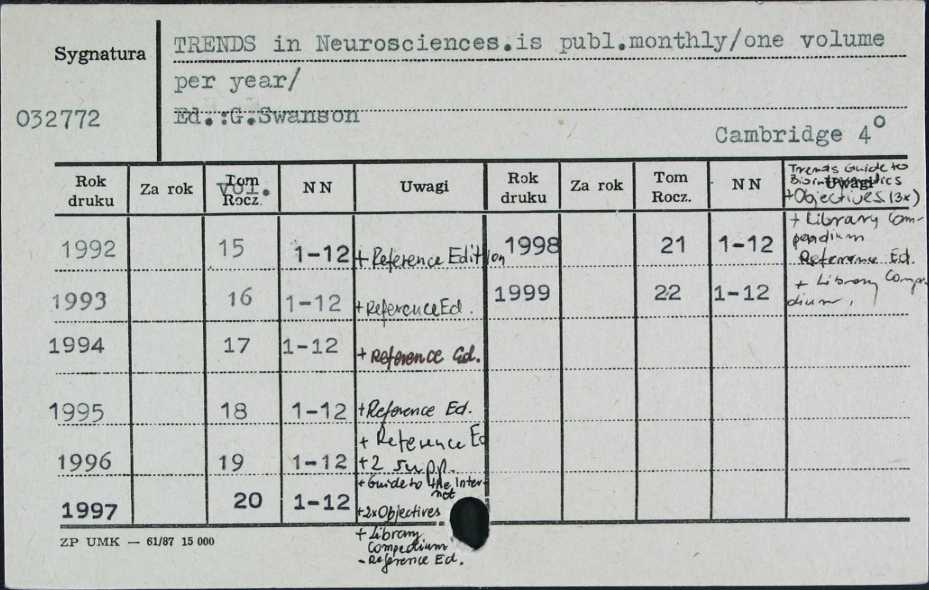 Sygnatura
TRENDS in Neurosciences.is publ.monthly/one volume
per year/
032772
Ed.:G.Swanson
Cambridge 4°
Rok druku
Za rok
Tom Rocz.
Vol.
NN
Uwagi
Rok druku
Za rok
Tom Rocz.
NN
Uwagi
Trends Guide to
+Objectives (3x)
1992 15 1-12 + Reference Edition
1998 21 1-12 + Library Com-
pendium
Reference Ed.
1993 16 1-12 +Reference Ed.
1999 22 1-12 + Library Compen-
dium,
1994 17 1-12 + Reference Ed.
1995 18 1-12 +Reference Ed.
1996 19 1-12 + Reference Ed
+2 supp.
1997 20 1-12 + Guide to the Inter-
net
+2xObjectives
+ Library
Compedium
- Reference Ed.
ZP UMK — 61/87 15 000